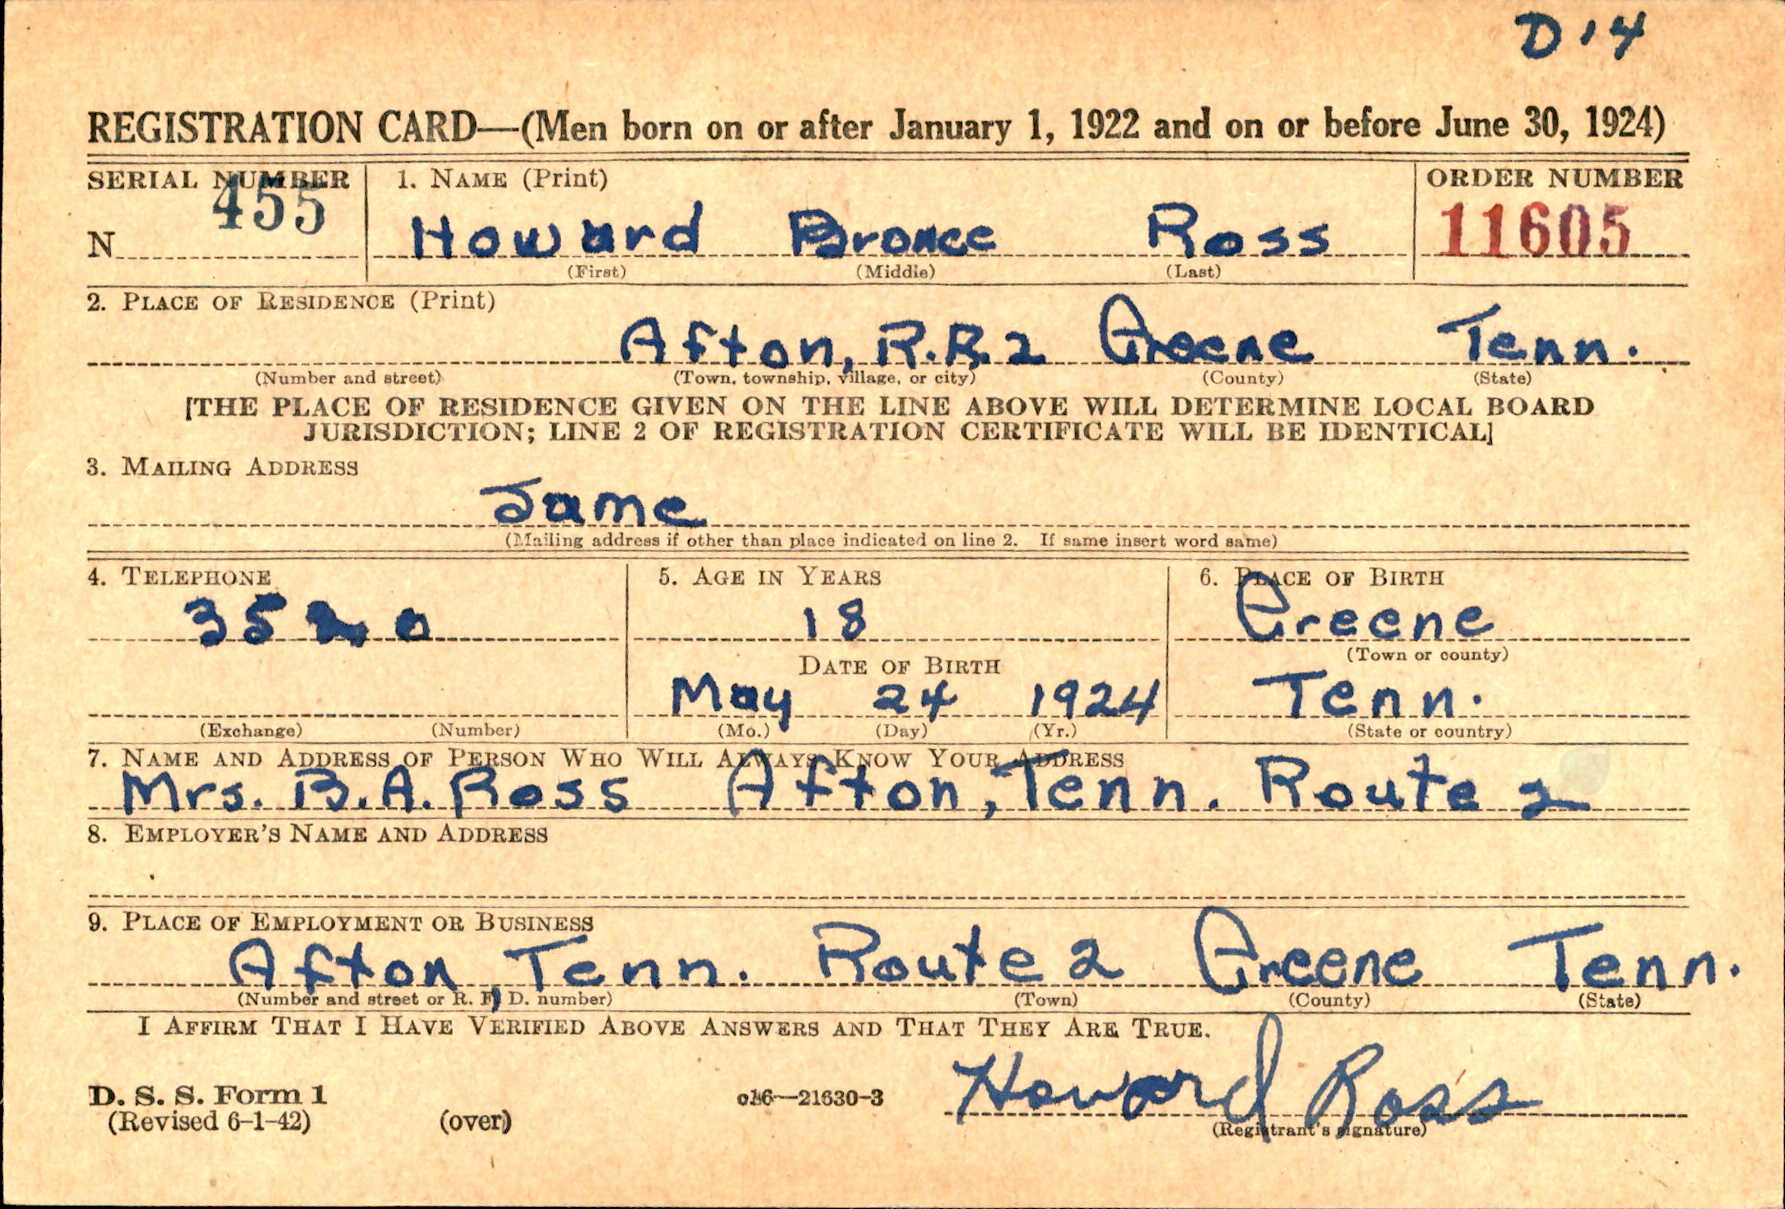 D 14
REGISTRATION CARD—(Men born on or after January 1, 1922 and on or before June 30, 1924)
SERIAL NUMBER 1. NAME (Print) ORDER NUMBER
N 455 Howard Bronce Ross 11605
(First) (Middle) (Last)
2. PLACE OF RESIDENCE (Print)
Afton, R.R. 2 Greene Tenn.
(Number and street) (Town, township, village, or city) (County) (State)
[THE PLACE OF RESIDENCE GIVEN ON THE LINE ABOVE WILL DETERMINE LOCAL BOARD
JURISDICTION; LINE 2 OF REGISTRATION CERTIFICATE WILL BE IDENTICAL]
3. MAILING ADDRESS
Same
(Mailing address if other than place indicated on line 2. If same insert word same)
4. TELEPHONE 5. AGE IN YEARS 6. PLACE OF BIRTH
3520 18 Greene
(Town or county)
DATE OF BIRTH
May 24 1924 Tenn.
(Exchange) (Number) (Mo.) (Day) (Yr.) (State or country)
7. NAME AND ADDRESS OF PERSON WHO WILL ALWAYS KNOW YOUR ADDRESS
Mrs. B.A. Ross Afton, Tenn. Route 2
8. EMPLOYER'S NAME AND ADDRESS
9. PLACE OF EMPLOYMENT OR BUSINESS
Afton, Tenn. Route 2 Greene Tenn.
(Number and street or R. F. D. number) (Town) (County) (State)
I AFFIRM THAT I HAVE VERIFIED ABOVE ANSWERS AND THAT THEY ARE TRUE.
D. S. S. Form 1 16—21630-3 Howard Ross
(Revised 6-1-42) (over) (Registrant's signature)